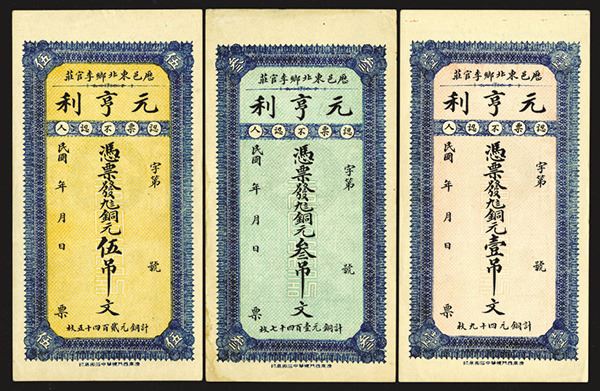 厯邑東北鄉李官莊
元亨利
認票不認人
字第 號
憑票發九八銅元伍吊文
民國 年 月 日 票
計銅元貳百四十五枚
伍
伍
伍
伍
厯邑東北鄉李官莊
元亨利
認票不認人
字第 號
憑票發九八銅元叁吊文
民國 年 月 日 票
計銅元壹百四十七枚
厯邑東北鄉李官莊
元亨利
認票不認人
字第 號
憑票發九八銅元壹吊文
民國 年 月 日 票
計銅元四十九枚